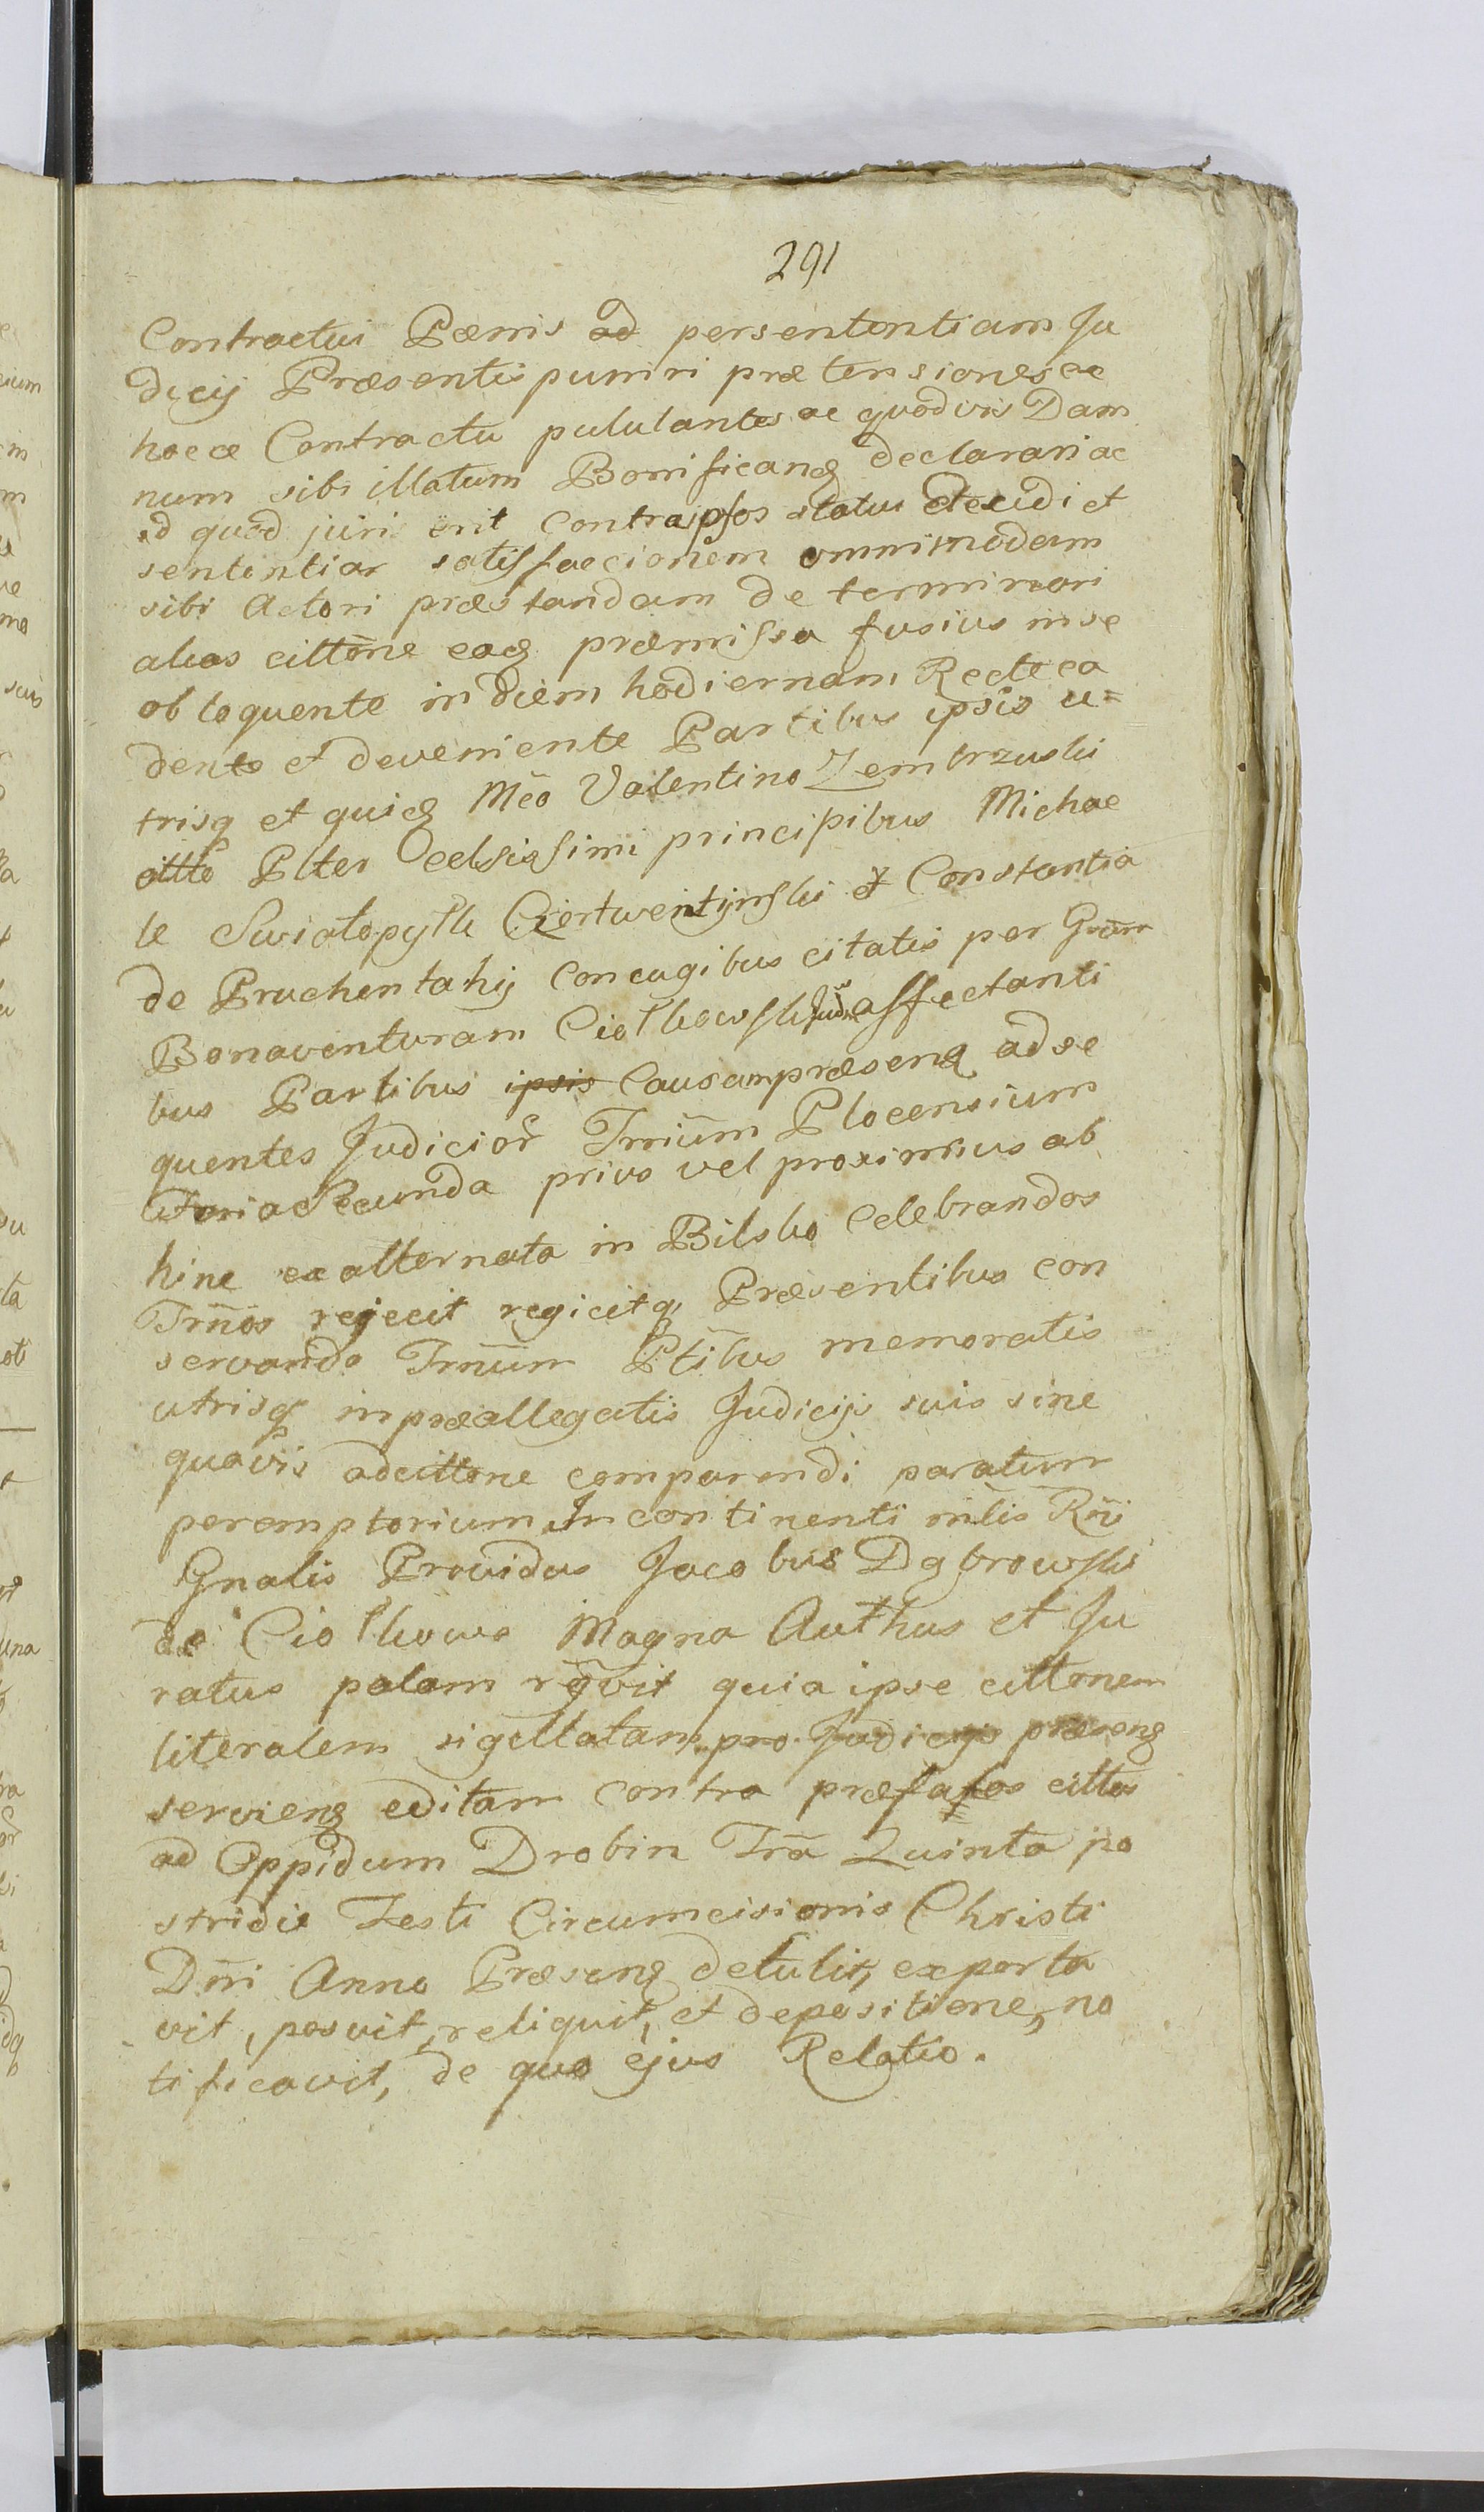 291
Contractui Pœnis ad persententiam Ju
dicij Præsentis puniri prætensiones ex
hocce Contractu pululantes ac quodvis Dam
num sibi illatum Bonificanq declarari ac
id quod juri erit contra ipsos statui decidi et
sententiar satisfaccionem omnimodam
sibi Actori præstandam determinari
alias cittõne eaq præmissa fusius in se
obloquente in diem hodiernam Recte ca
dente et deveniente Partibus ipsis u=
trisq et quidq Mco Valentino Zembrzuski
Plter Celsissimi principibus Michae
le Swiatopylk Czertwentynski et Constantia
de Pruchentahij Coniugibus citatis per Gsum
Bonaventuram Ciołkowski affectanti
bus Partibus ipsis Causam præsenq ad se
quentes Judicior Trrium Plocensium
feria Secunda prius vel proximius ab
hinc ex alternata in Bilsko Celebrandos
Trnos rejecit regicitq Præsentibus con
servando Trnum Ptibus memoratis
utrisq in præallegatis Judicijs suis sine
quavis adcittone comparendi paratum
peremptorium. In continenti mlis Rni
Gnalis Providus Jacobus Dąbrowski
de Ciołkowo Magna Authus et Ju
ratus palam rgvit quia ipse cittonem
literalem sigillatam pro Judicijs præsenq
servienq editam contra præfatos cittos
ad Oppidum Drobin Frã Quinta po
stridie Festi Circumcisionis Christi
Dni Anno Præsenq detulit, exporta
vit, posuit, reliquit, et depositione, no
tificavit, de quo ejus Relatio.